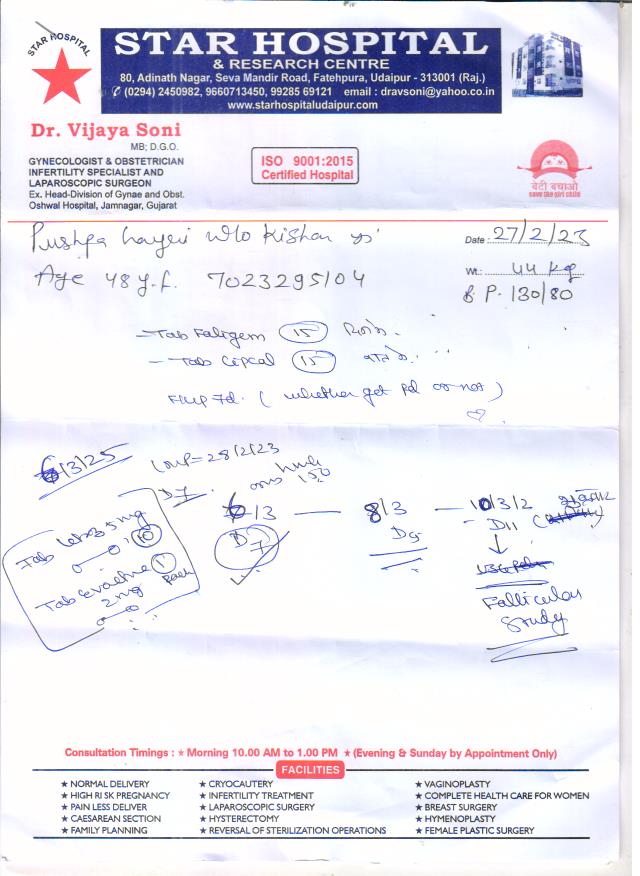 STAR HOSPITAL
STAR HOSPITAL
& RESEARCH CENTRE
80, Adinath Nagar, Seva Mandir Road, Fatehpura, Udaipur - 313001 (Raj.)
(0294) 2450982, 9660713450, 99285 69121 email : dravsoni@yahoo.co.in
www.starhospitaludaipur.com
Dr. Vijaya Soni
MB; D.G.O.
GYNECOLOGIST & OBSTETRICIAN
INFERTILITY SPECIALIST AND
LAPAROSCOPIC SURGEON
Ex. Head-Division of Gynae and Obst.
Oshwal Hospital, Jamnagar, Gujarat
ISO 9001:2015
Certified Hospital
बेटी बचाओ
save the girl child
Pushpa w/o Kishan
Date : 27/2/23
Age 48 y.f. 7023295104
Wt.: 44 kg
B.P. 130/80
- Tab (15)
- Tab Cipcal (15)
(whether get or not)
6/3/25
LMP = 28/2/23
D7
150
6/3 — 8/3 — 10/3/2
D7
D9
D11
Tab 5mg
10
Tab
2mg
Follicular
Study
Consultation Timings : ★ Morning 10.00 AM to 1.00 PM ★ (Evening & Sunday by Appointment Only)
FACILITIES
★ NORMAL DELIVERY
★ HIGH RI SK PREGNANCY
★ PAIN LESS DELIVER
★ CAESAREAN SECTION
★ FAMILY PLANNING
★ CRYOCAUTERY
★ INFERTILITY TREATMENT
★ LAPAROSCOPIC SURGERY
★ HYSTERECTOMY
★ REVERSAL OF STERILIZATION OPERATIONS
★ VAGINOPLASTY
★ COMPLETE HEALTH CARE FOR WOMEN
★ BREAST SURGERY
★ HYMENOPLASTY
★ FEMALE PLASTIC SURGERY